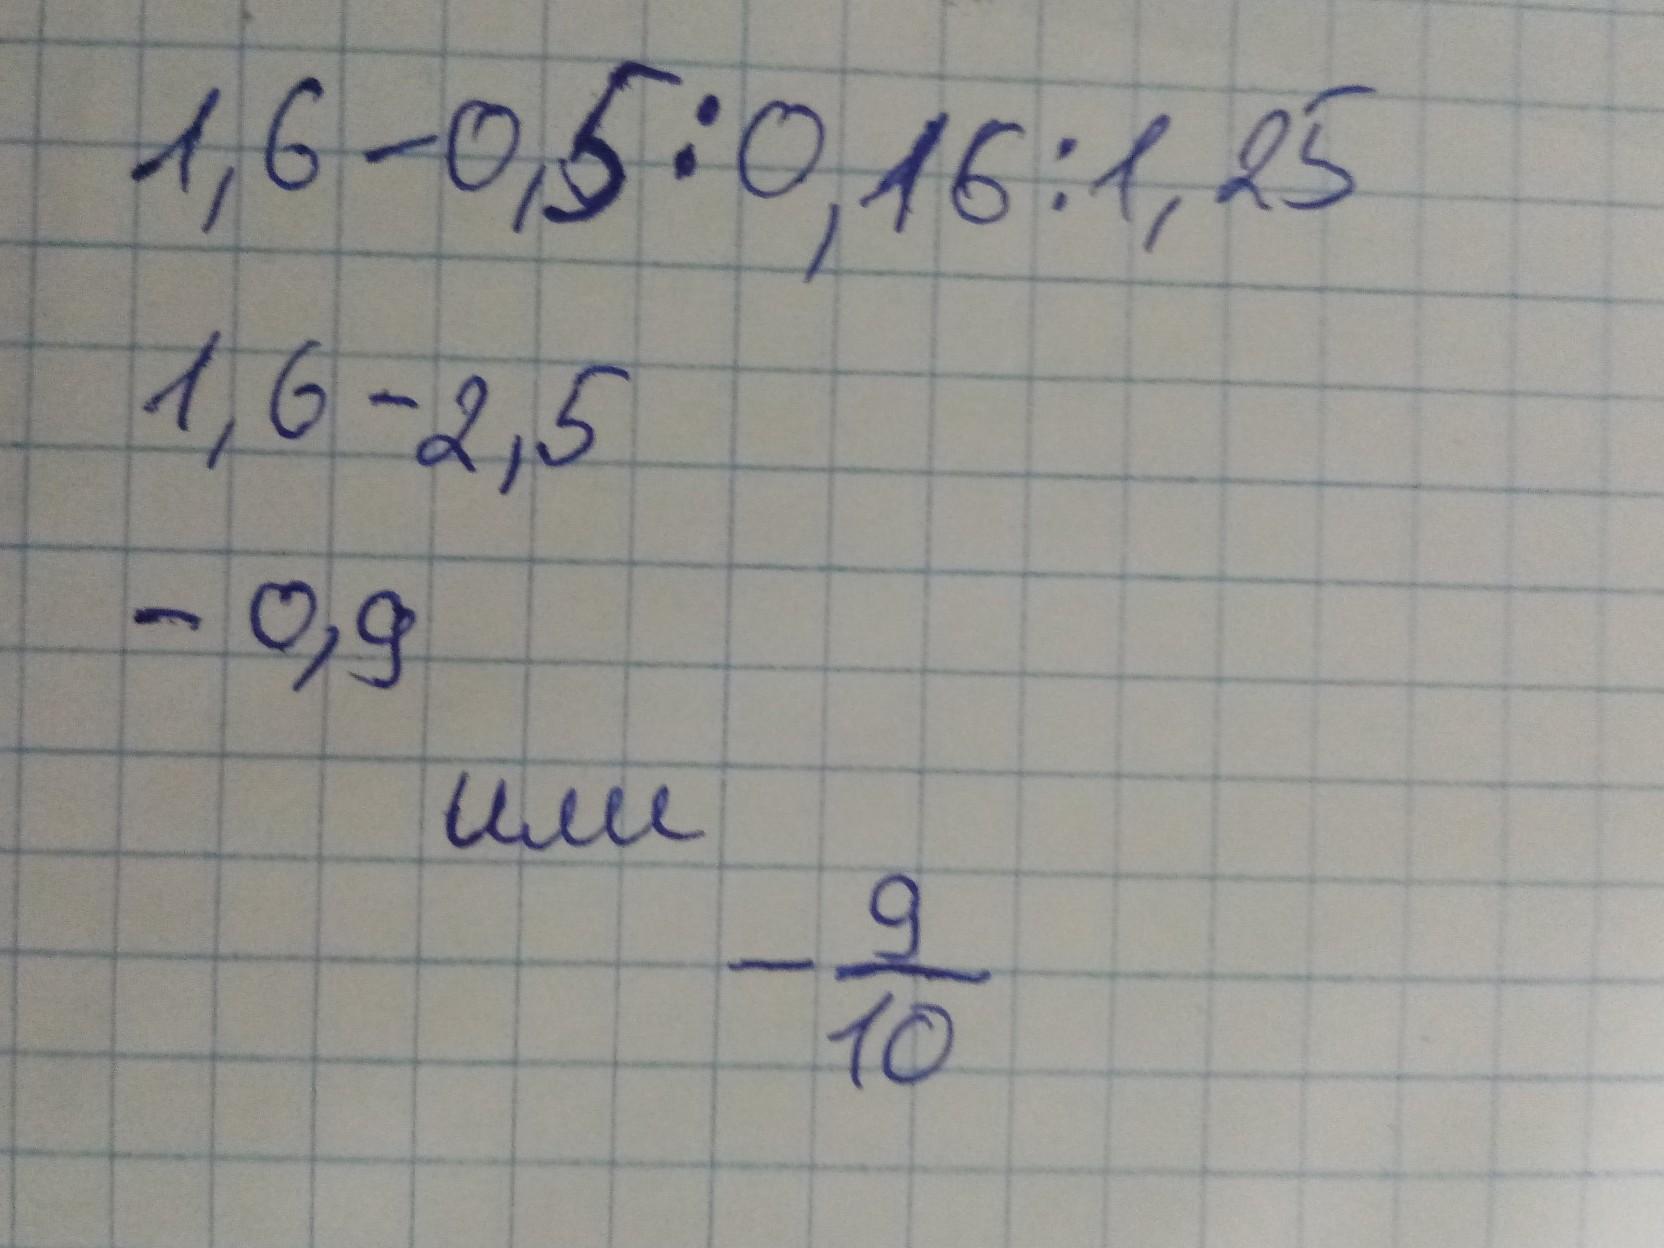 1,6-0,5:0,16:1,25
1,6-2,5
-0,9
или
-9/10